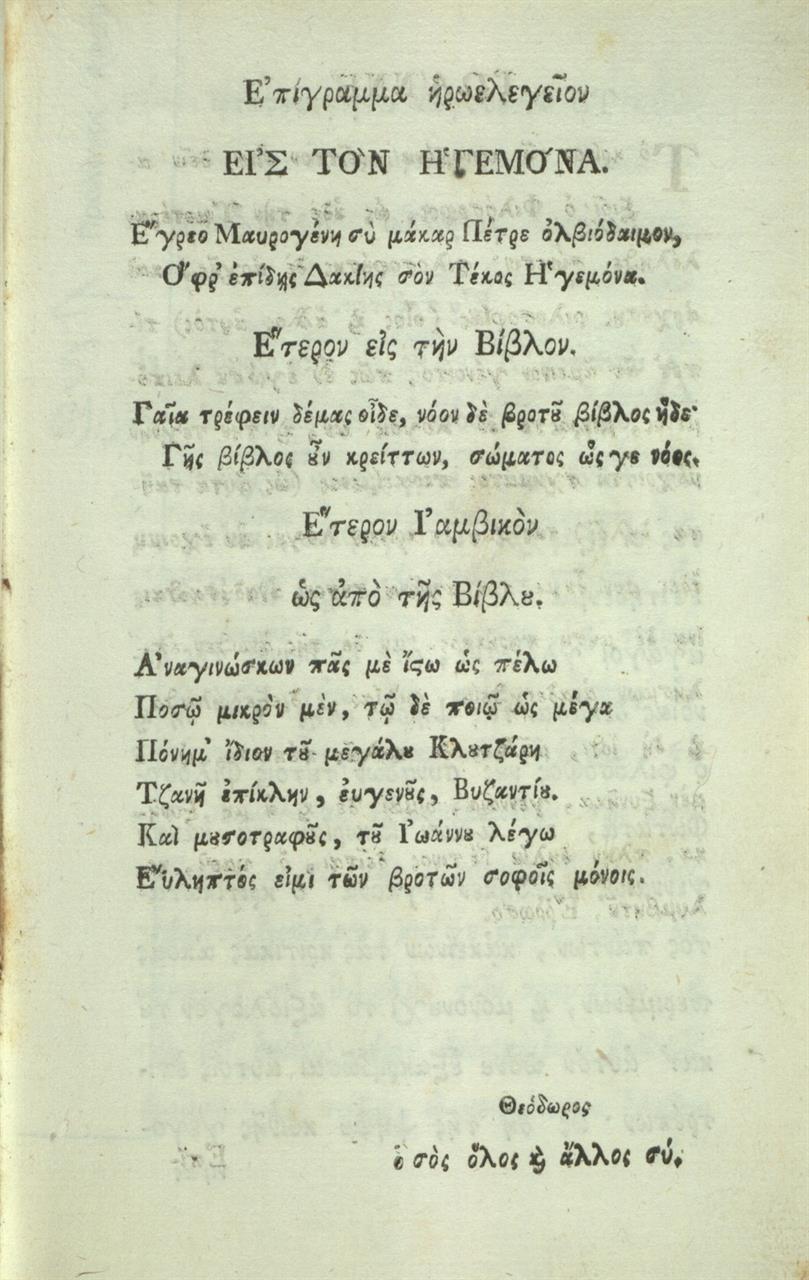 Ἐπίγραμμα ἡρωελεγεῖον
ΕἸΣ ΤῸΝ ἩΓΕΜΌΝΑ.
Ἔγρεο Μαυρογένη σὺ μάκαρ Πέτρε ὀλβιόδαιμον,
Ὄφρ' ἐπίδῃς Δακίης σὸν Τέκος Ἡγεμόνα.
Ἕτερον εἰς τὴν Βίβλον.
Γαῖα τρέφειν δέμας οἶδε, νόον δὲ βροτȣ͂ βίβλος ἥδε·
Γῆς βίβλος ȣ̓͂ν κρείττων, σώματος ὥς γε νόος.
Ἕτερον Ἰαμβικὸν
ὡς ἀπὸ τῆς Βίβλȣ.
Ἀναγινώσκων πᾶς μὲ ἴϛω ὡς πέλω
Ποσῷ μικρὸν μὲν, τῷ δὲ ποιῷ ὡς μέγα
Πόνημ' ἴδιον τȣ͂ μεγάλȣ Κλȣτζάρη
Τζανῆ ἐπίκλην, ἐυγενȣ͂ς, Βυζαντίȣ.
Καὶ μȣσοτραφȣ͂ς, τȣ͂ Ἰωάννȣ λέγω
Εὔληπτός εἰμι τῶν βροτῶν σοφοῖς μόνοις.
Θεόδωρος
ὁ σὸς ὅλος ϗ ἄλλος σύ.